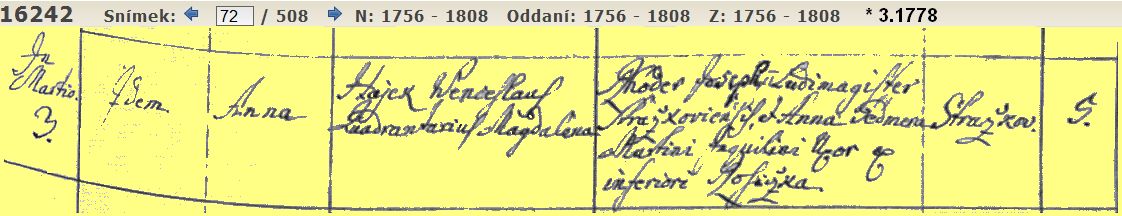 16242 Snímek: 72 / 508 N: 1756 - 1808 Oddaní: 1756 - 1808 Z: 1756 - 1808 * 3.1778
In
Martio.
3.
Idem
Anna
Hajek Wenceslaus
Quadrantarius Magdalena
Joseph Ludimagister
Stražkoviensis, et Anna
Martini Inquilini Uxor ex
inferiori Rosiczka
Stražkov.
S.